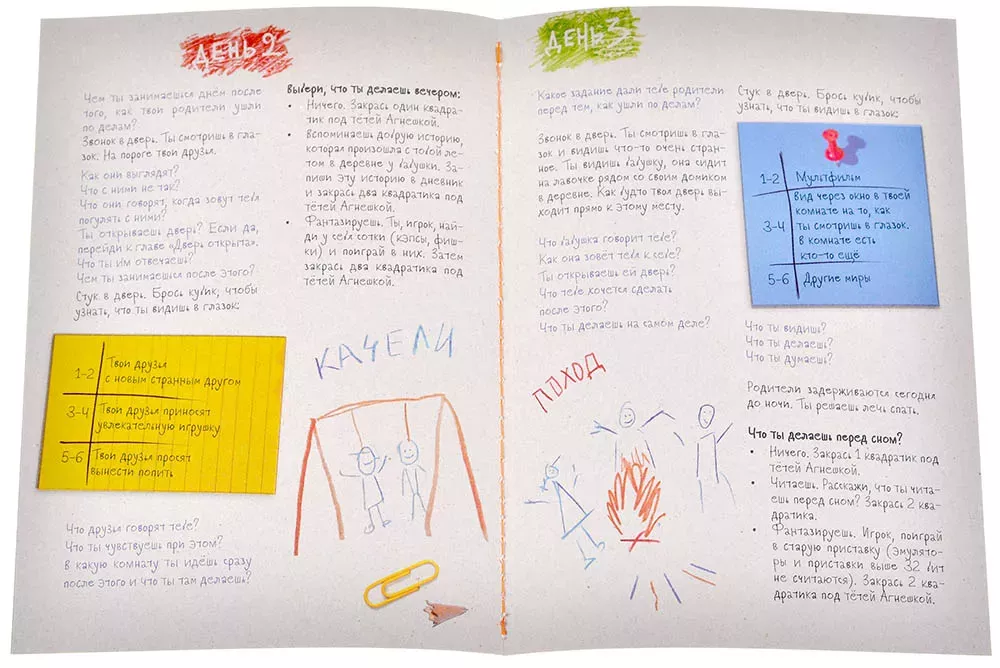 ДЕНЬ 2
Чем ты занимаешься днём после
того, как твои родители ушли
по делам?
Звонок в дверь. Ты смотришь в гла-
зок. На пороге твои друзья.
Как они выглядят?
Что с ними не так?
Что они говорят, когда зовут тебя
погулять с ними?
Ты открываешь дверь? Если да,
перейди к главе «Дверь открыта».
Что ты им отвечаешь?
Чем ты занимаешься после этого?
Стук в дверь. Брось кубик, чтобы
узнать, что ты видишь в глазок:
1-2 Твои друзья
с новым странным другом
3-4 Твои друзья приносят
увлекательную игрушку
5-6 Твои друзья просят
вынести попить
Что друзья говорят тебе?
Что ты чувствуешь при этом?
В какую комнату ты идёшь сразу
после этого и что ты там делаешь?
Выбери, что ты делаешь вечером:
• Ничего. Закрась один квадра-
тик под тётей Агнешкой.
• Вспоминаешь добрую историю,
которая произошла с тобой ле-
том в деревне у бабушки. За-
пиши эту историю в дневник
и закрась два квадратика под
тётей Агнешкой.
• Фантазируешь. Ты, игрок, най-
ди у себя сотки (кэпсы, фиш-
ки) и поиграй в них. Затем
закрась два квадратика под
тётей Агнешкой.
КАЧЕЛИ
ДЕНЬ 3
Какое задание дали тебе родители
перед тем, как ушли по делам?
Звонок в дверь. Ты смотришь в гла-
зок и видишь что-то очень стран-
ное. Ты видишь бабушку, она сидит
на лавочке рядом со своим домиком
в деревне. Как будто твоя дверь вы-
ходит прямо к этому месту.
Что бабушка говорит тебе?
Как она зовёт тебя к себе?
Ты открываешь ей дверь?
Что тебе хочется сделать
после этого?
Что ты делаешь на самом деле?
ПОХОД
Стук в дверь. Брось кубик, чтобы
узнать, что ты видишь в глазок:
1-2 Мультфильм
3-4 Вид через окно в твоей
комнате на то, как
ты смотришь в глазок.
В комнате есть
кто-то ещё
5-6 Другие миры
Что ты видишь?
Что ты делаешь?
Что ты думаешь?
Родители задерживаются сегодня
до ночи. Ты решаешь лечь спать.
Что ты делаешь перед сном?
• Ничего. Закрась 1 квадратик под
тётей Агнешкой.
• Читаешь. Расскажи, что ты чита-
ешь перед сном? Закрась 2 ква-
дратика.
• Фантазируешь. Игрок, поиграй
в старую приставку (эмулято-
ры и приставки выше 32 бит
не считаются). Закрась 2 ква-
дратика под тётей Агнешкой.